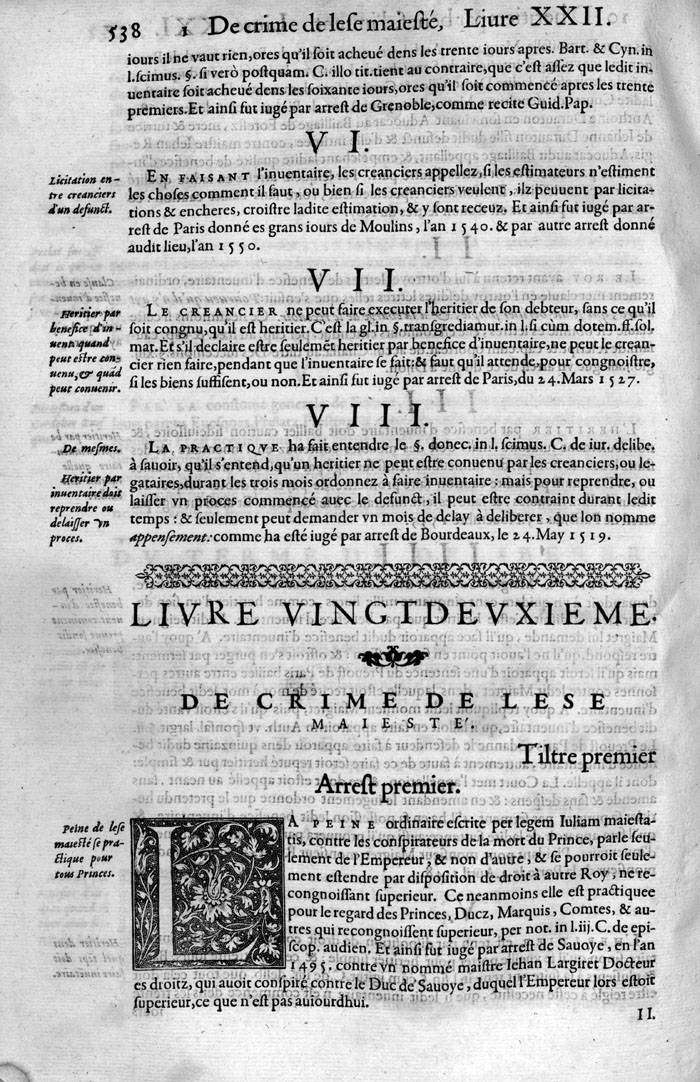 538 1 De crime de lese maiesté, Liure XXII.
iours il ne vaut rien, ores qu'il soit acheué dens les trente iours apres. Bart. & Cyn. in
l. scimus. §. si verò postquam. C. illo tit. tient au contraire, que c'est assez que ledit in-
uentaire soit acheué dens les soixante iours, ores qu'il soit commencé apres les trente
premiers. Et ainsi fut iugé par arrest de Grenoble, comme recite Guid. Pap.
VI.
Licitation en-
tre creanciers
d'un defunct.
EN FAISANT l'inuentaire, les creanciers appellez, si les estimateurs n'estiment
les choses comment il faut, ou bien si les creanciers veulent, ilz peuuent par licita-
tions & encheres, croistre ladite estimation, & y sont receuz. Et ainsi fut iugé par ar-
rest de Paris donné es grans iours de Moulins, l'an 1540. & par autre arrest donné
audit lieu, l'an 1550.
VII.
Heritier par
benefice d'in-
uent. quand
peut estre con-
uenu, & quãd
peut conuenir.
LE CREANCIER ne peut faire executer l'heritier de son debteur, sans ce qu'il
soit congnu, qu'il est heritier. C'est la gl. in §. transgrediamur. in l. si cùm dotem. ff. sol.
mat. Et s'il declaire estre seulemẽt heritier par benefice d'inuentaire, ne peut le crean-
cier rien faire, pendant que l'inuentaire se fait: & faut qu'il attende, pour congnoistre,
si les biens suffisent, ou non. Et ainsi fut iugé par arrest de Paris, du 24. Mars 1527.
VIII.
De mesmes.
Heritier par
inuentaire doit
reprendre ou
delaisser vn
proces.
LA PRACTIQVE ha fait entendre le §. donec. in l. scimus. C. de iur. delibe.
à sauoir, qu'il s'entend, qu'un heritier ne peut estre conuenu par les creanciers, ou le-
gataires, durant les trois mois ordonnez à faire inuentaire: mais pour reprendre, ou
laisser vn proces commencé auec le defunct, il peut estre contraint durant ledit
temps: & seulement peut demander vn mois de delay à deliberer, que lon nomme
appensement: comme ha esté iugé par arrest de Bourdeaux, le 24. May 1519.
LIVRE VINGTDEVXIEME.
DE CRIME DE LESE
MAIESTE'.
Tiltre premier
Arrest premier.
Peine de lese
maiesté se pra-
ctique pour
tous Princes.
LA PEINE ordinaire escrite per legem Iuliam maiesta-
tis, contre les conspirateurs de la mort du Prince, parle seu-
lement de l'Empereur, & non d'autre, & se pourroit seule-
ment estendre par disposition de droit à autre Roy, ne re-
congnoissant superieur. Ce neanmoins elle est practiquee
pour le regard des Princes, Ducz, Marquis, Comtes, & au-
tres qui recongnoissent superieur, per not. in l. iij. C. de epi-
scop. audien. Et ainsi fut iugé par arrest de Sauoye, en l'an
1495. contre vn nommé maistre Iehan Largiret Docteur
es droitz, qui auoit conspiré contre le Duc de Sauoye, duquel l'Empereur lors estoit
superieur, ce que n'est pas auiourdhui.
II.